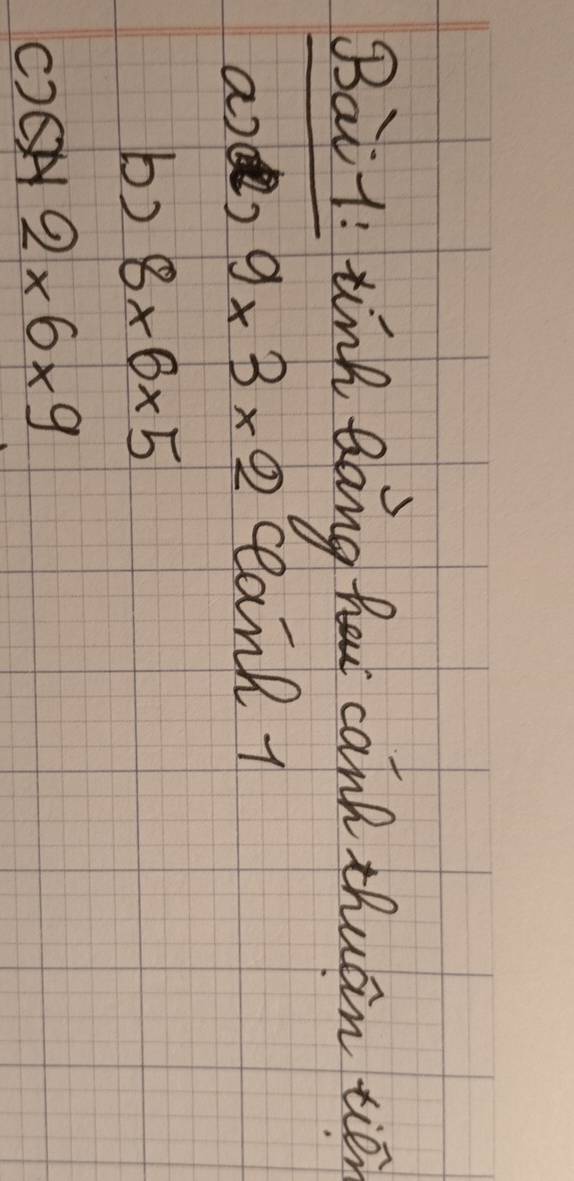 Bài 1: tính bằng hai cánh thuận tiện
a) 9 x 3 x 2 Cánh 1
b) 8 x 6 x 5
c) 2 x 6 x 9